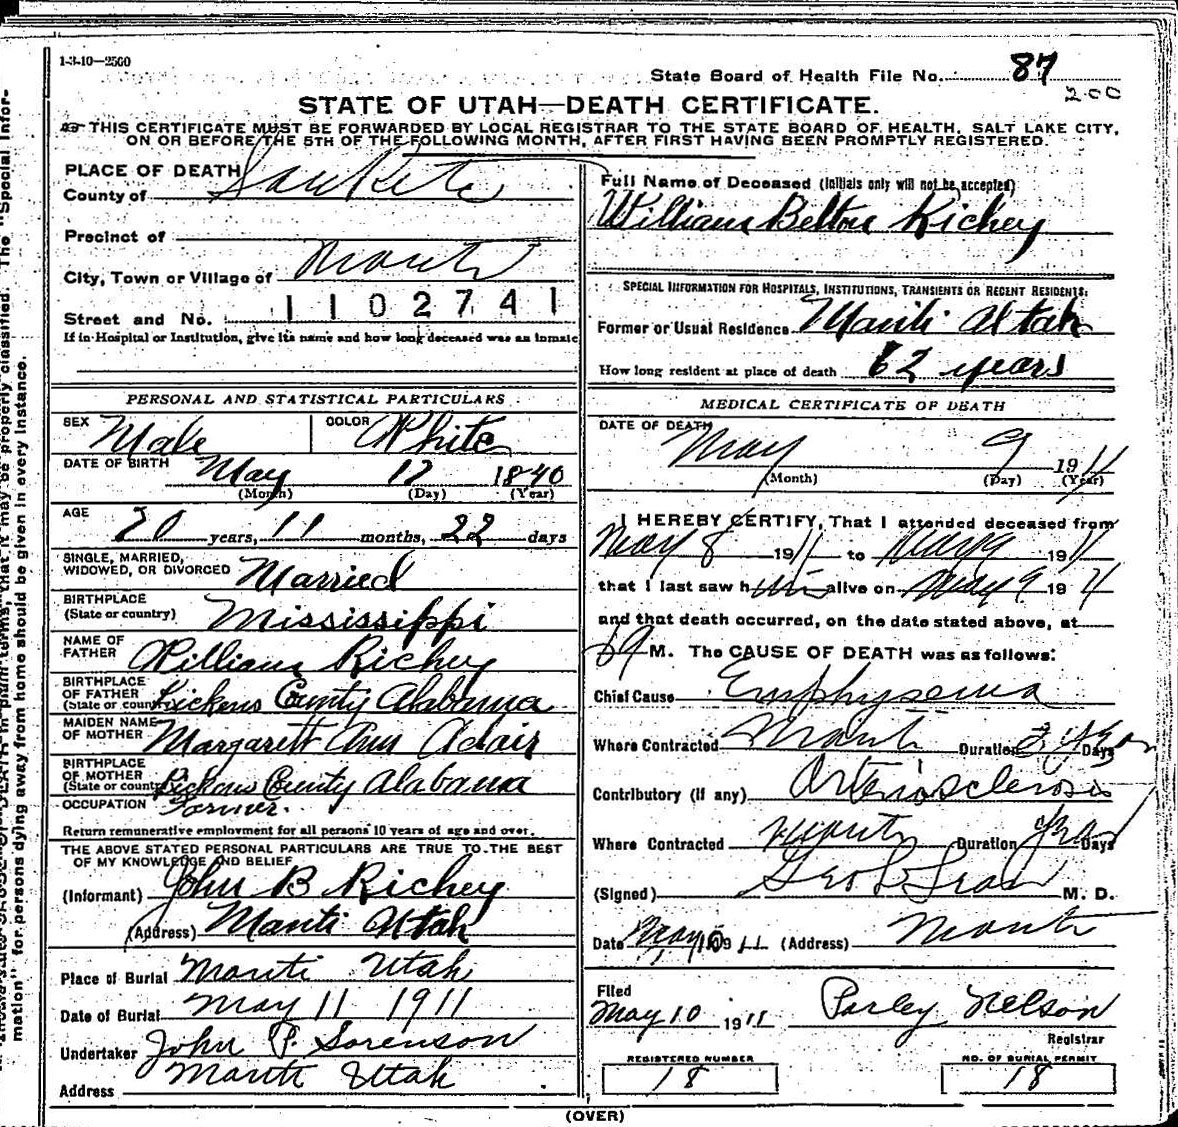 1-3-10—2500
State Board of Health File No. 87
STATE OF UTAH—DEATH CERTIFICATE.
THIS CERTIFICATE MUST BE FORWARDED BY LOCAL REGISTRAR TO THE STATE BOARD OF HEALTH, SALT LAKE CITY,
ON OR BEFORE THE 5TH OF THE FOLLOWING MONTH, AFTER FIRST HAVING BEEN PROMPTLY REGISTERED.
PLACE OF DEATH
County of San Pete
Precinct of
City, Town or Village of Manti
Street and No. 1102741
If in Hospital or Institution, give its name and how long deceased was an inmate
PERSONAL AND STATISTICAL PARTICULARS
SEX Male COLOR White
DATE OF BIRTH May 17 1840
(Month) (Day) (Year)
AGE
70 years, 11 months, 22 days
SINGLE, MARRIED,
WIDOWED, OR DIVORCED Married
BIRTHPLACE
(State or country) Mississippi
NAME OF
FATHER William Richey
BIRTHPLACE
OF FATHER
(State or country) Pickens County Alabama
MAIDEN NAME
OF MOTHER Margarett Ann Adair
BIRTHPLACE
OF MOTHER
(State or country) Pickens County Alabama
OCCUPATION Farmer.
Return remunerative employment for all persons 10 years of age and over.
THE ABOVE STATED PERSONAL PARTICULARS ARE TRUE TO THE BEST
OF MY KNOWLEDGE AND BELIEF
(Informant) John B Richey
(Address) Manti Utah
Place of Burial Manti Utah
Date of Burial May 11 1911
Undertaker John P. Sorenson
Address Manti Utah
Full Name of Deceased (Initials only will not be accepted)
William Belton Richey
SPECIAL INFORMATION FOR HOSPITALS, INSTITUTIONS, TRANSIENTS OR RECENT RESIDENTS.
Former or Usual Residence Manti Utah
How long resident at place of death 62 years
MEDICAL CERTIFICATE OF DEATH
DATE OF DEATH
May 9 1911
(Month) (Day) (Year)
I HEREBY CERTIFY, That I attended deceased from
May 8 1911 to May 9 1911
that I last saw him alive on May 9 19
and that death occurred, on the date stated above, at
M. The CAUSE OF DEATH was as follows:
Chief Cause Emphysema
Where Contracted Manti Duration Days
Contributory (if any) Arteriosclerosis
Where Contracted Manti Duration Days
(Signed) Geo M. D.
Date May 10 1911 (Address) Manti
Filed
May 10 1911 Parley Nelson
Registrar
REGISTERED NUMBER
18
NO. OF BURIAL PERMIT
18
(OVER)
mation" for persons dying away from home should be given in every instance.